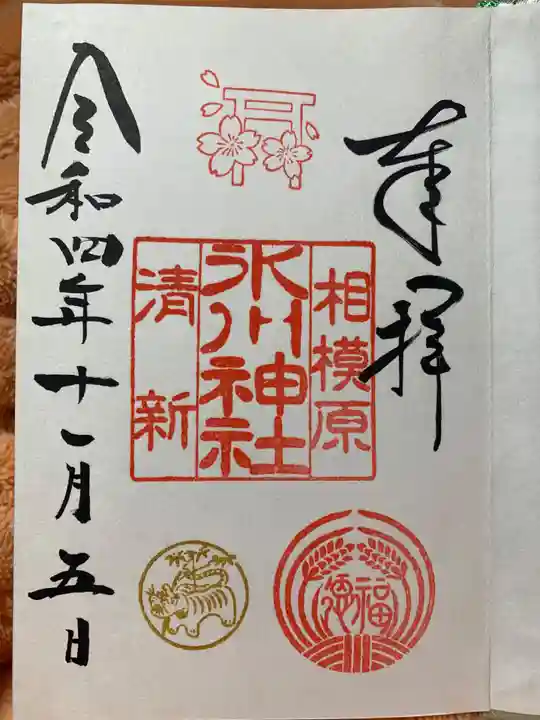 奉拝
相模原
氷川神社
清新
福徳
令和四年十一月五日